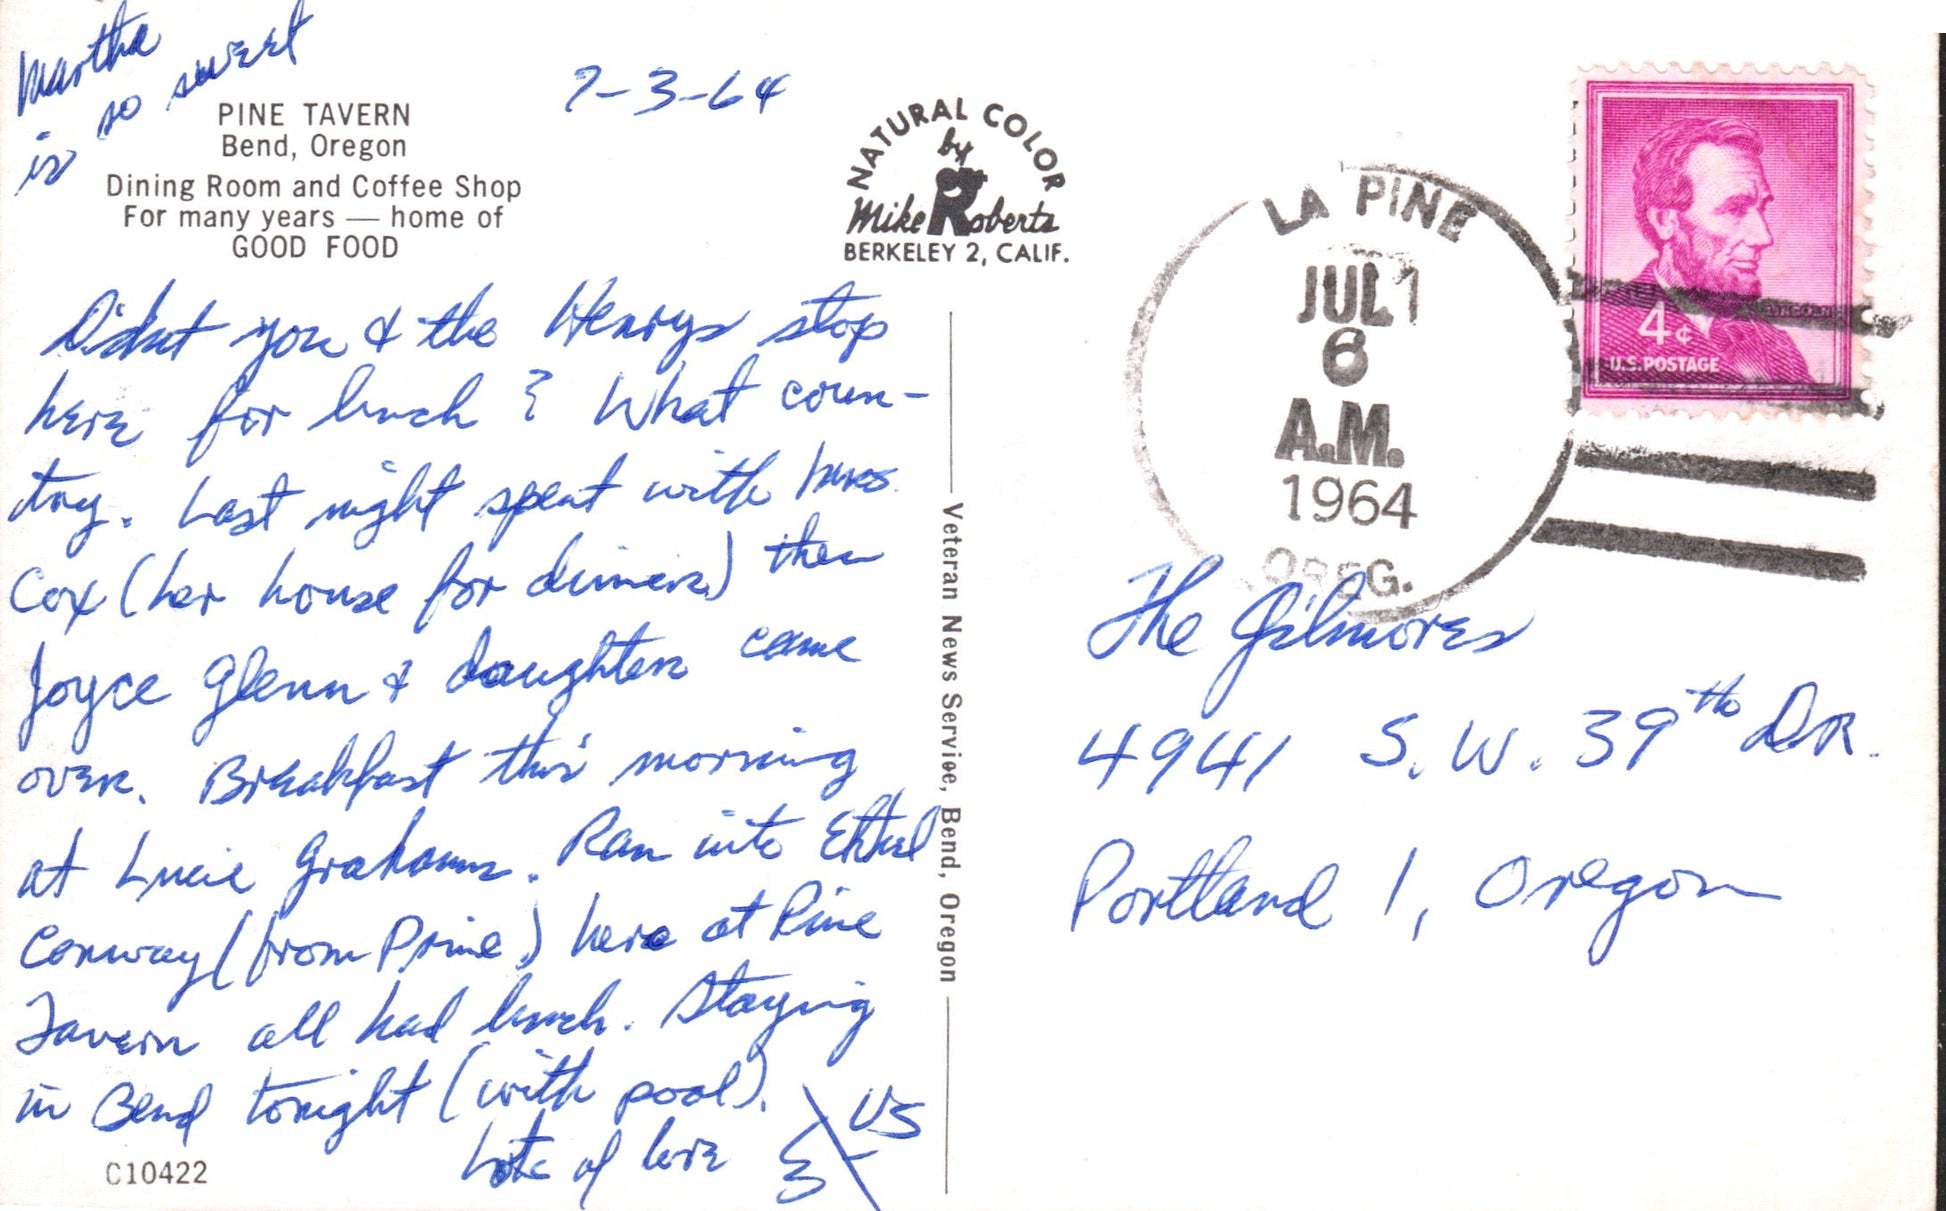 Martha
is so sweet
7-3-64
PINE TAVERN
Bend, Oregon
Dining Room and Coffee Shop
For many years — home of
GOOD FOOD
NATURAL COLOR
by
Mike Roberts
BERKELEY 2, CALIF.
Didnt you & the Henrys stop
here for lunch? What coun-
try. Last night spent with
Cox (her house for dinner) then
Joyce Glenn & daughter came
over. Breakfast this morning
at Lucie Grahams. Ran into Ethel
Conway (from Prine) here at Pine
Tavern all had lunch. Staying
in Bend tonight (with pool).
Lots of love
US
C10422
Veteran News Service, Bend, Oregon
LA PINE
JUL
6
A.M.
1964
OREG.
LINCOLN
4¢
U.S. POSTAGE
The Gilmores
4941 S.W. 39th DR.
Portland 1, Oregon